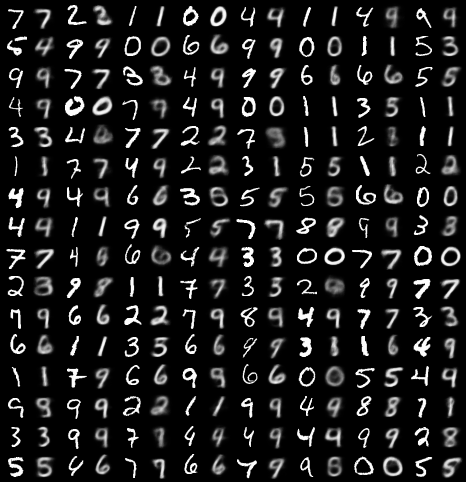 7 7 2 2 1 1 0 0 4 4 1 1 4 9 9 9
5 4 9 9 0 0 6 6 9 9 0 0 1 1 5 3
9 9 7 7 3 3 4 9 9 9 6 6 6 6 5 5
4 9 0 0 7 9 4 9 0 0 1 1 3 5 1 1
3 3 4 7 7 2 2 7 1 1 2 1 1
1 1 7 7 4 9 2 2 3 1 5 5 1 1 2 2
4 9 4 9 6 6 3 5 5 5 5 5 6 6 0 0
4 9 1 1 9 9 5 5 7 7 8 8 9 9 3 3
7 7 4 6 6 4 4 3 3 0 0 7 7 0 0
2 3 9 8 1 1 7 7 3 3 2 9 9 7 7
7 9 6 6 2 2 7 9 8 9 4 9 7 7 3 3
6 6 1 1 3 5 6 6 9 9 3 1 6 4 9
1 1 7 9 6 6 9 9 6 6 0 0 5 5 4 4
9 9 9 9 2 2 1 1 9 9 4 9 8 8 7 1
3 3 9 9 7 4 4 4 9 4 4 9 9 2 8
5 5 4 6 7 7 6 6 7 9 9 8 0 0 5 5